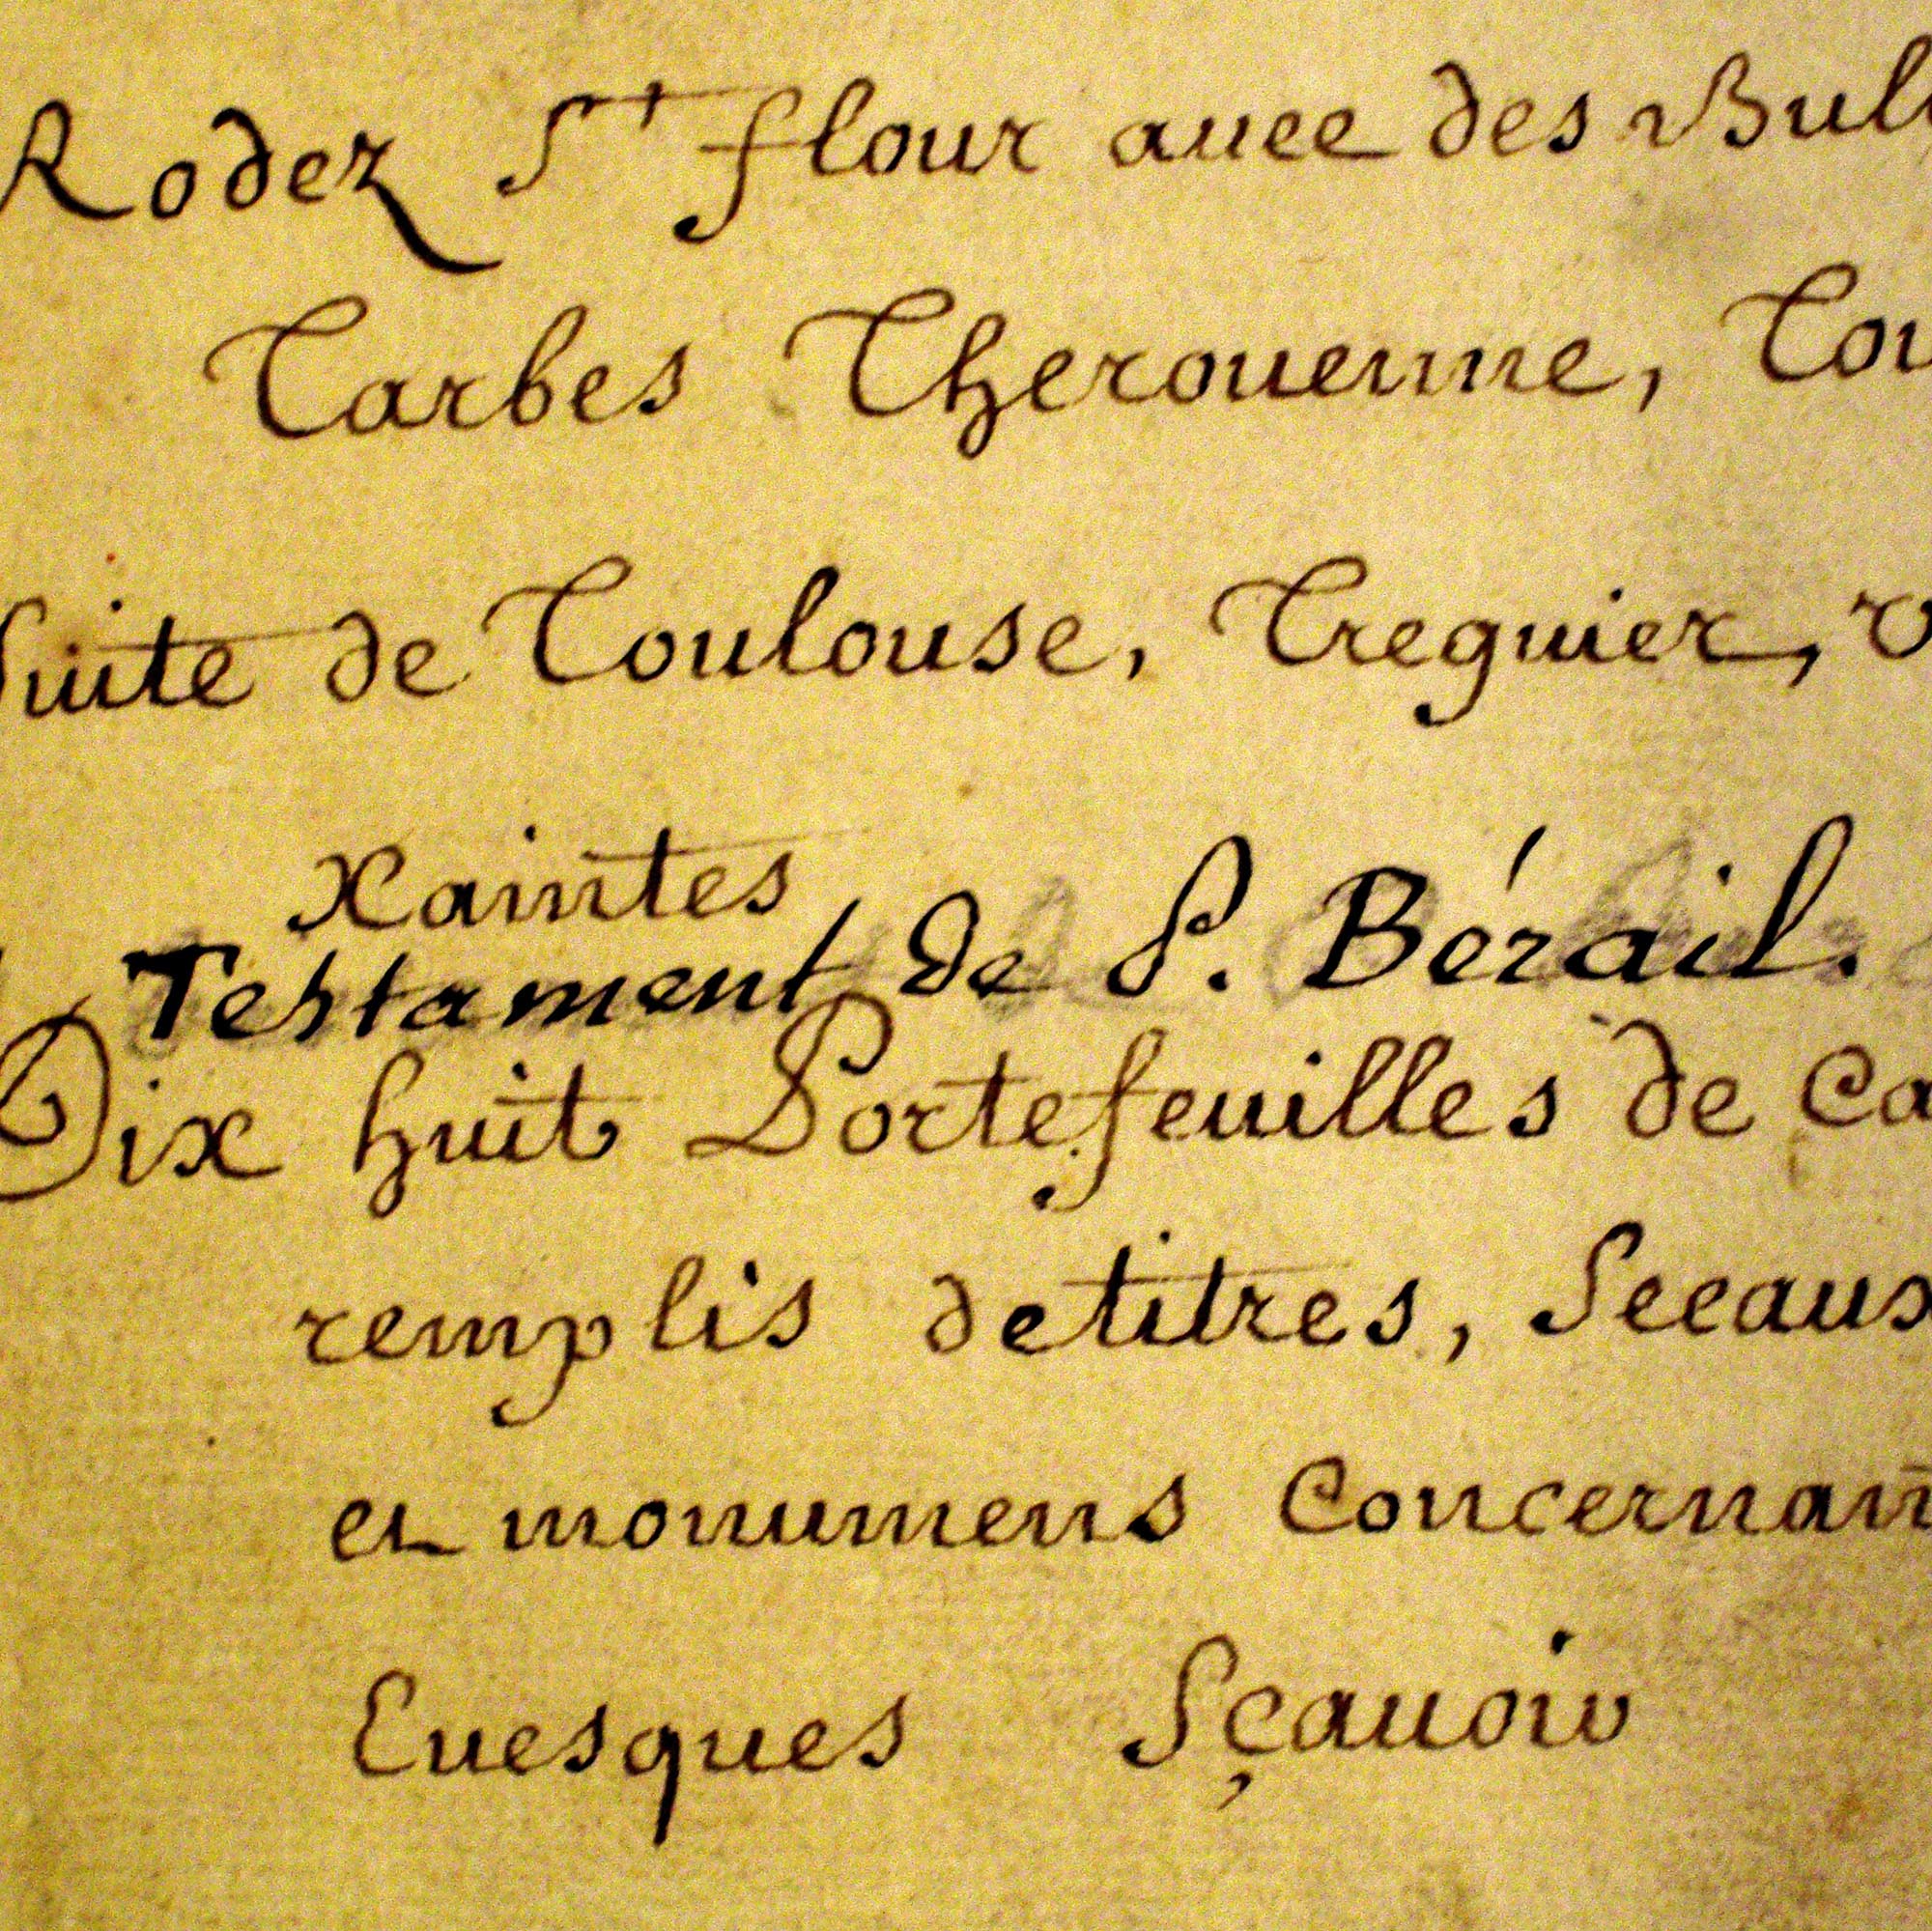 Rodez St flour auec des
Tarbes Therouenne,
Suite de Toulouse, Treguier,
Xaintes
Testament de P. Bérail.
Dix huit Portefeuilles de
remplis de titres, Sceaux
et monumens Concernant
Euesques Sçauoir